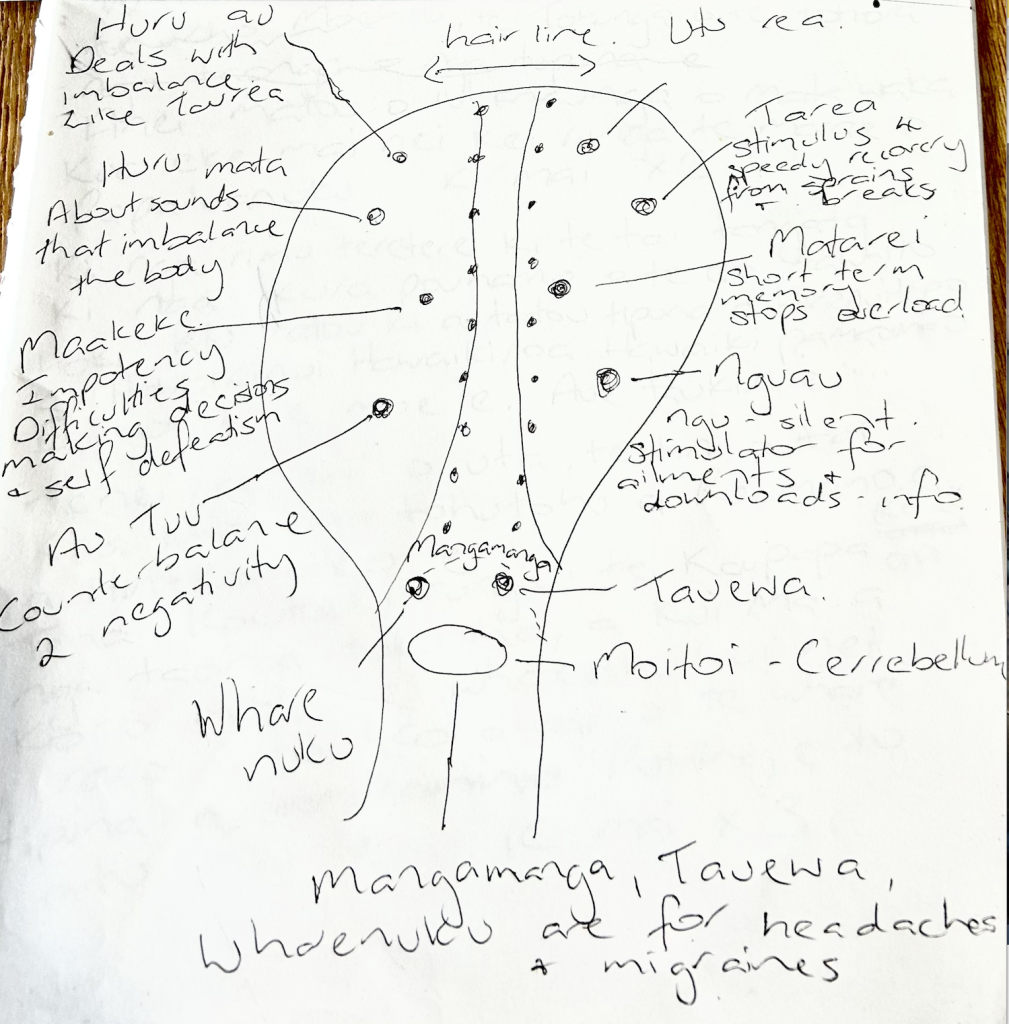 Huru au
Deals with
imbalance
Like Taurea
hair line.
Utu rea.
Huru mata
About sounds
that imbalance
the body
Tarea
stimulus 4
speedy recovery
from sprains
+ breaks
Maakeke
Impotency
Difficulties
making decisions
+ self defeatism
Matarei
short term
memory
stops overload.
Nguau
ngu - silent.
stimulator for
ailments +
downloads - info.
Au Tuu
Counterbalance
2 negativity
Mangamanga
Tauewa.
Moitoi - Cerrebellum
Whare
nuku
Mangamanga, Tauewa,
Wharenuku are for headaches
+ migraines